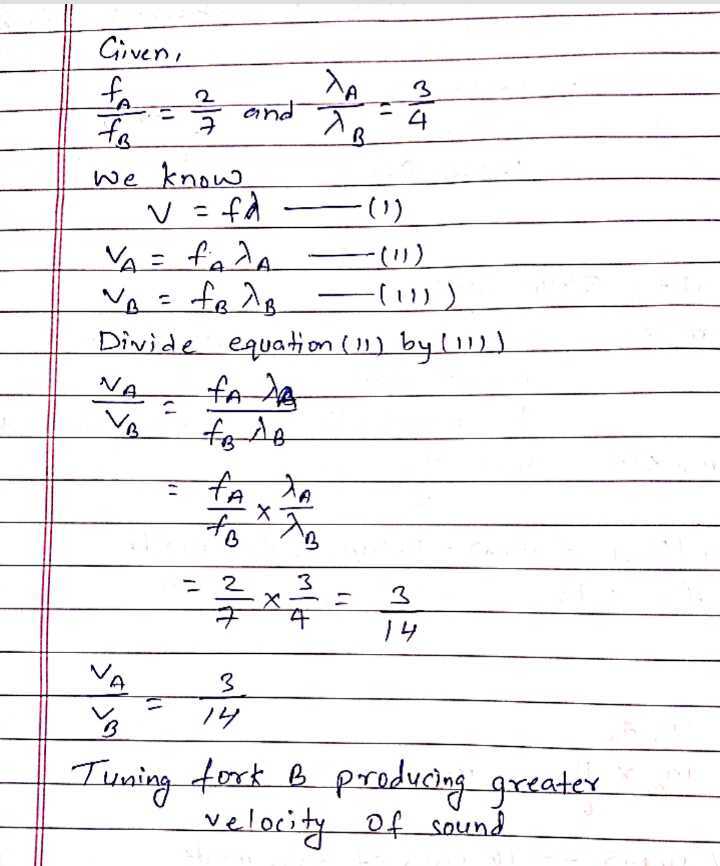 Given,
fA/fB = 2/7 and λA/λB = 3/4
We know
V = fλ —— (1)
VA = fA λA —— (11)
VB = fB λB —— (111)
Divide equation (11) by (111)
VA/VB = fA λA / fB λB
= fA/fB × λA/λB
= 2/7 × 3/4 = 3/14
VA/VB = 3/14
Tuning fork B producing greater
velocity of sound